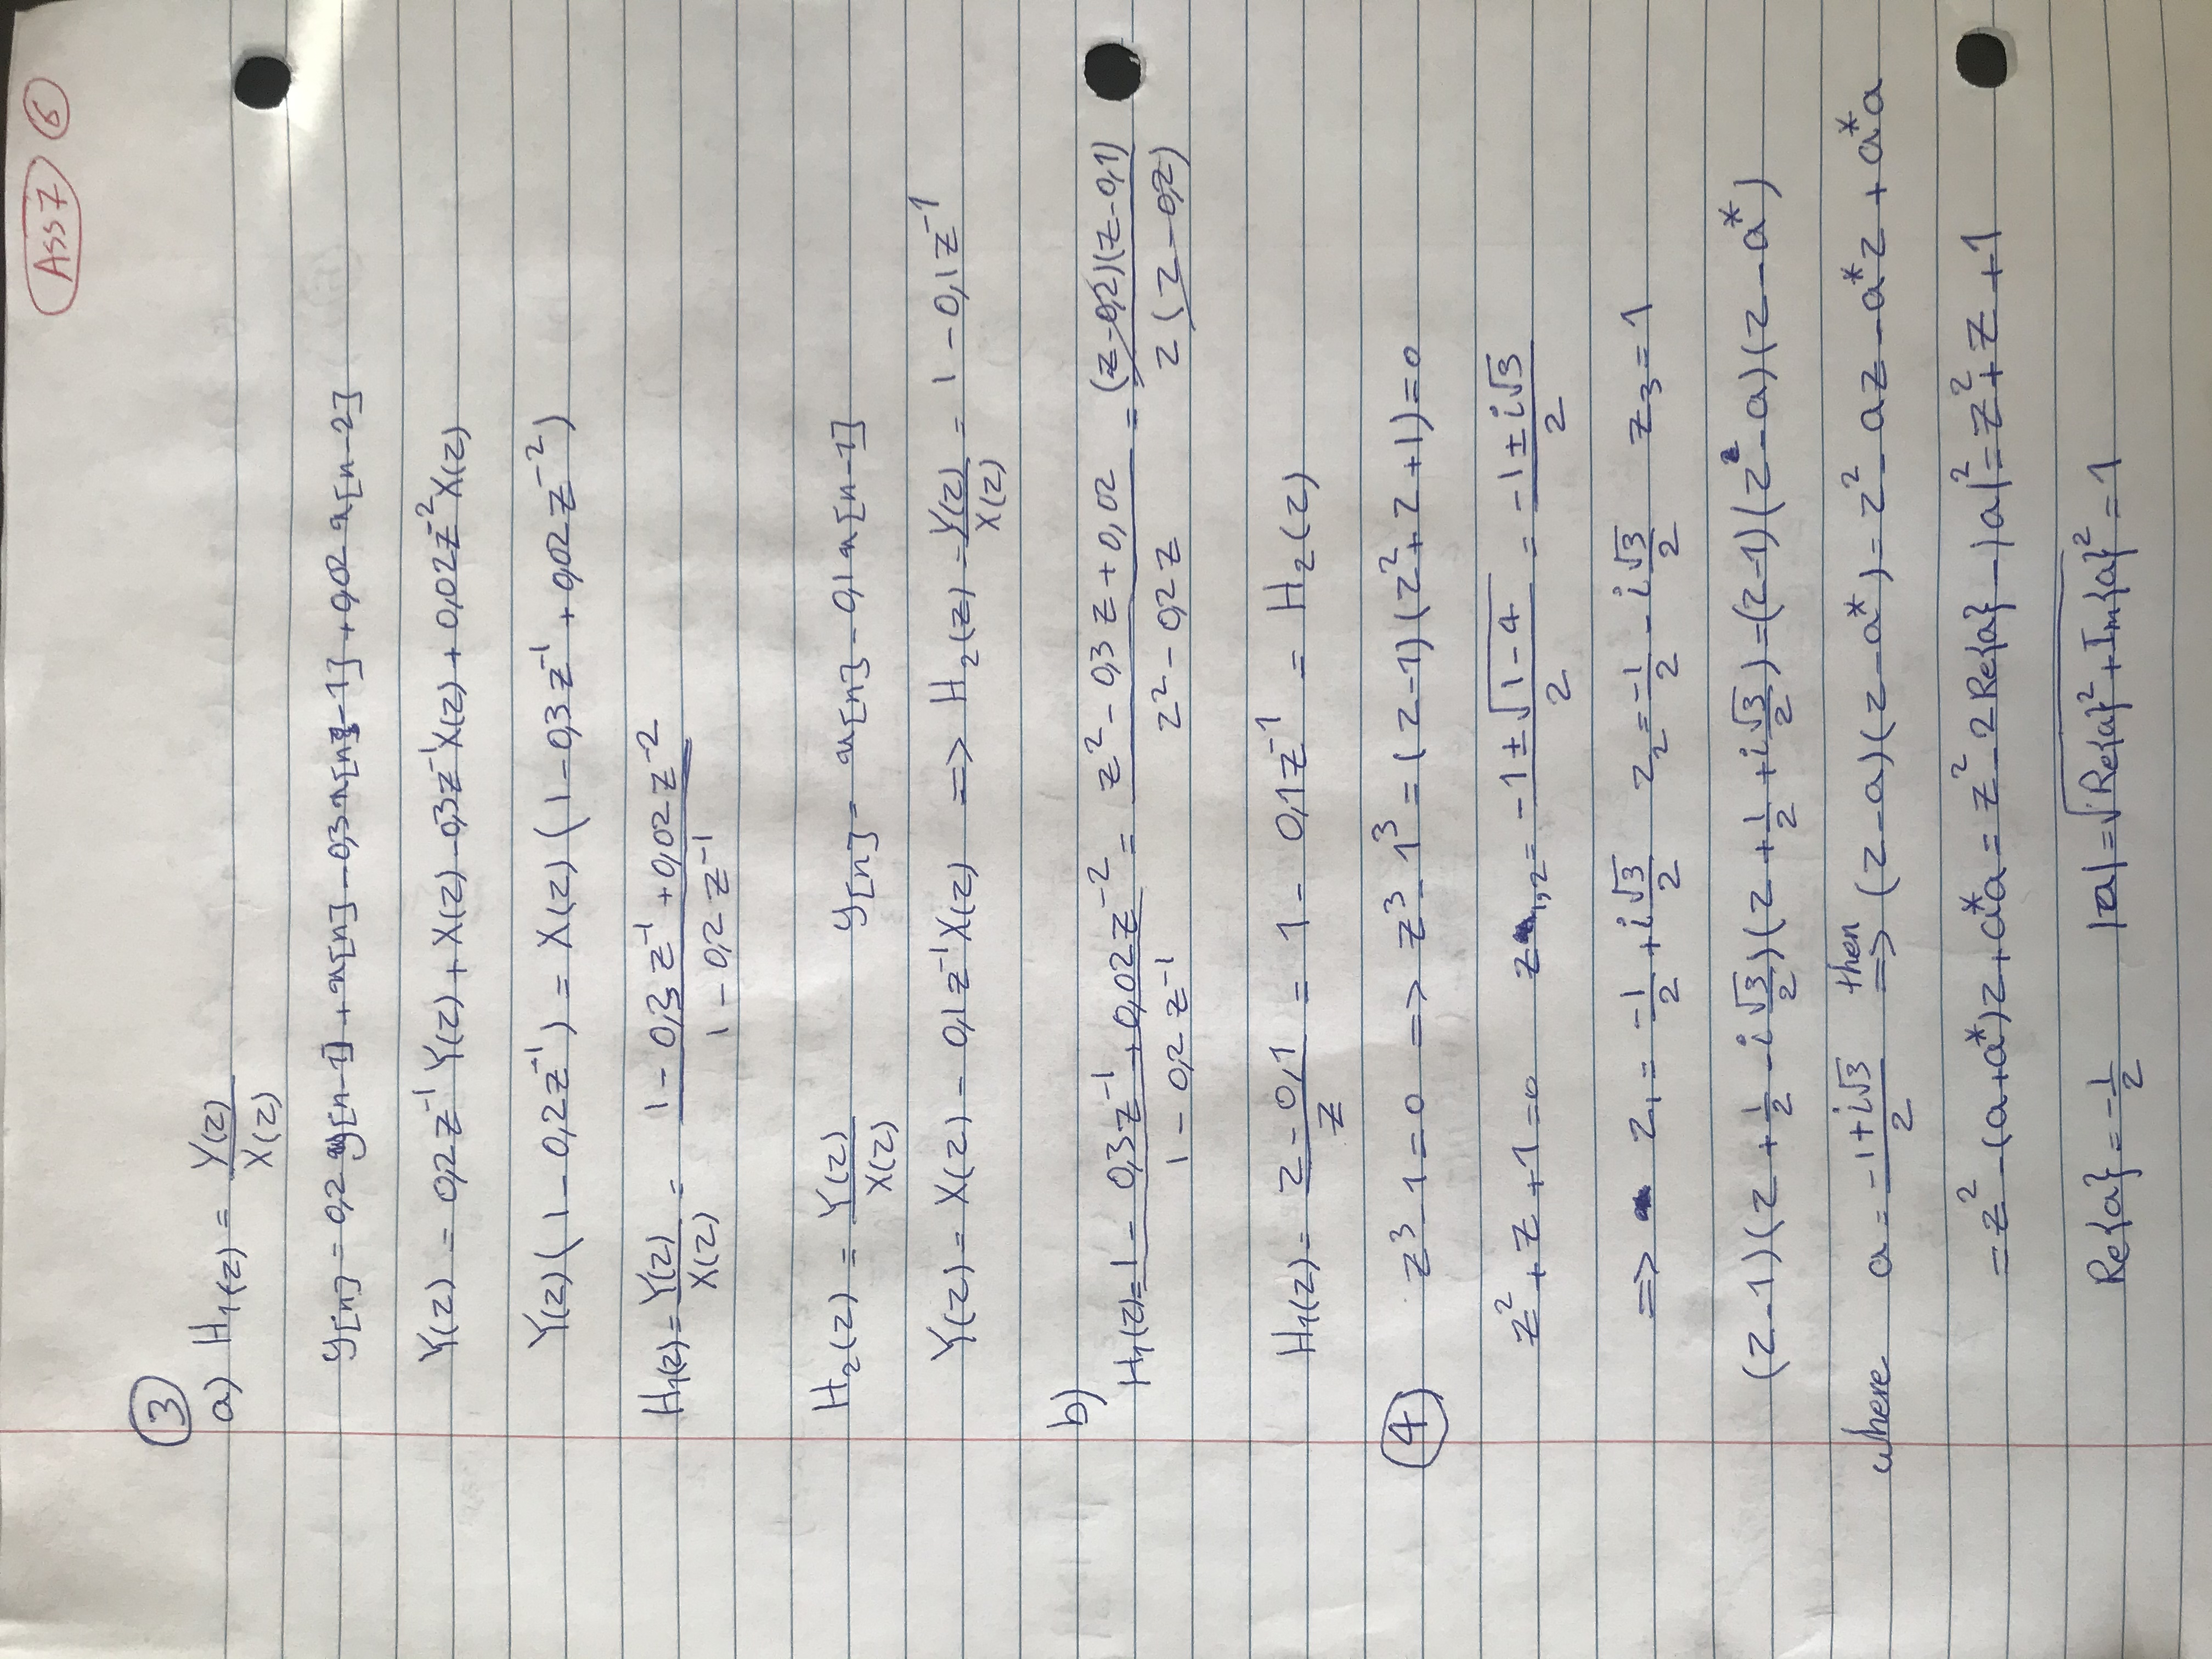 Ass 7 6
3
a) H₁(z) = Y(z)/X(z)
y[n] = 0,2 y[n-1] + x[n] - 0,3 x[n-1] + 0,02 x[n-2]
Y(z) = 0,2 z⁻¹ Y(z) + X(z) - 0,3z⁻¹X(z) + 0,02z⁻²X(z)
Y(z)(1 - 0,2z⁻¹) = X(z)(1 - 0,3z⁻¹ + 0,02z⁻²)
H₁(z) = Y(z)/X(z) = (1 - 0,3z⁻¹ + 0,02z⁻²)/(1 - 0,2z⁻¹)
H₂(z) = Y(z)/X(z) y[n] = x[n] - 0,1x[n-1]
Y(z) = X(z) - 0,1z⁻¹X(z) => H₂(z) = Y(z)/X(z) = 1 - 0,1z⁻¹
b)
H₁(z) = (1 - 0,3z⁻¹ + 0,02z⁻²)/(1 - 0,2z⁻¹) = (z² - 0,3z + 0,02)/(z² - 0,2z) = (z-0,2)(z-0,1)/z(z-0,2)
H₁(z) = (z - 0,1)/z = 1 - 0,1z⁻¹ = H₂(z)
4 z³ - 1 = 0 => z³ - 1³ = (z-1)(z² + z + 1) = 0
z² + z + 1 = 0 z₁,₂ = (-1 ± √(1-4))/2 = (-1 ± i√3)/2
=> z₁ = -1/2 + i√3/2 z₂ = -1/2 - i√3/2 z₃ = 1
(z-1)(z + 1/2 - i√3/2)(z + 1/2 + i√3/2) = (z-1)(z - a)(z - a*)
where a = (-1 + i√3)/2 then => (z-a)(z-a*) = z² - az - a*z + a*a
= z² - (a+a*)z + a*a = z² - 2Re{a} - |a|² = z² + z + 1
Re{a} = -1/2 |a| = √(Re{a}² + Im{a}²) = 1